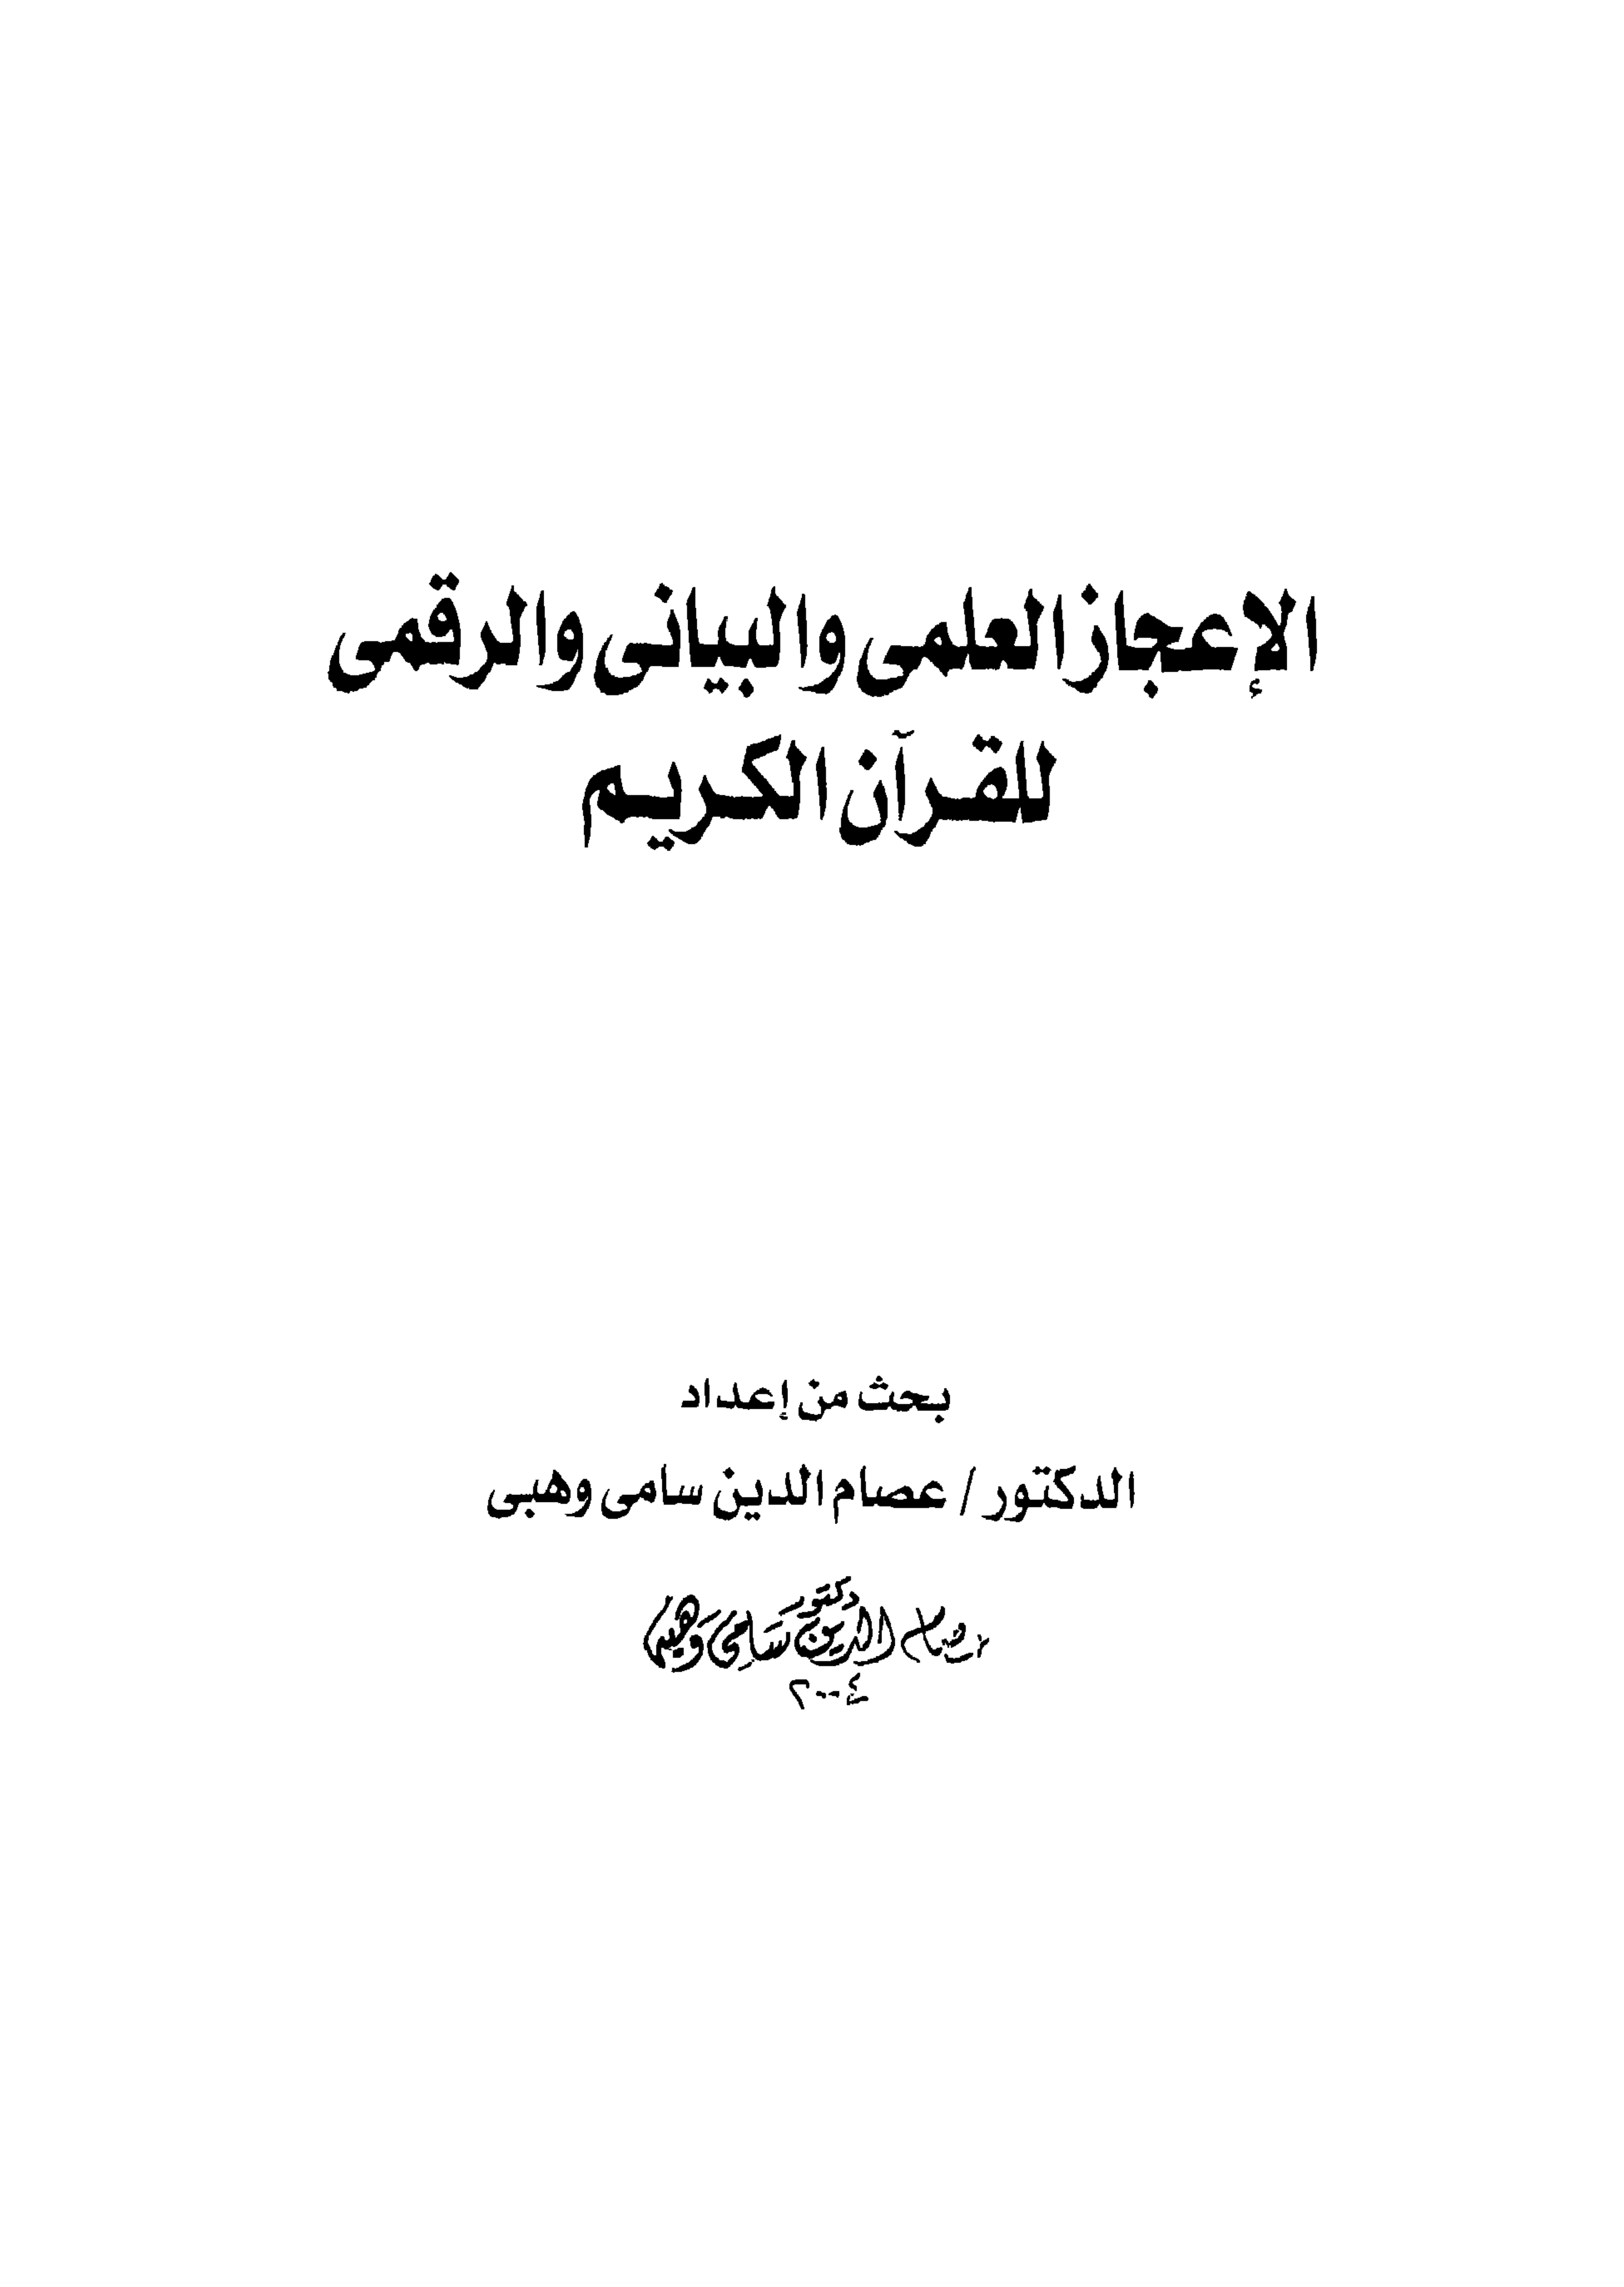 الإعجاز العلمى والبيانى والرقمى
للقرآن الكريم
بحث من إعداد
الدكتور / عصام الدين سامى وهبى
دكتور
عصام الدين سامى وهبى
٢٠٠٤